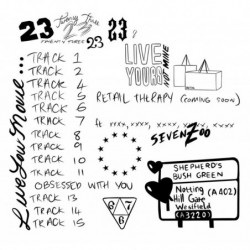 23
23
TWENTY THREE
23
23
LIVE
YOURS
NOT MINE
Live Your Movie...
TRACK 1
TRACK 2
TRACK 4
TRACK 5
TRACK 6
TRACK 7
TRACK 8
TRACK 9
TRACK 10
TRACK 11
OBSESSED WITH YOU
TRACK 13
TRACK 14
TRACK 15
RETAIL THERAPY (COMING SOON)
ft xxxx, xxxx, xxxx
SEVENZOO
7
6 7
SHEPHERD'S
BUSH GREEN
Notting (A402)
Hill Gate
Westfield
(A3220)